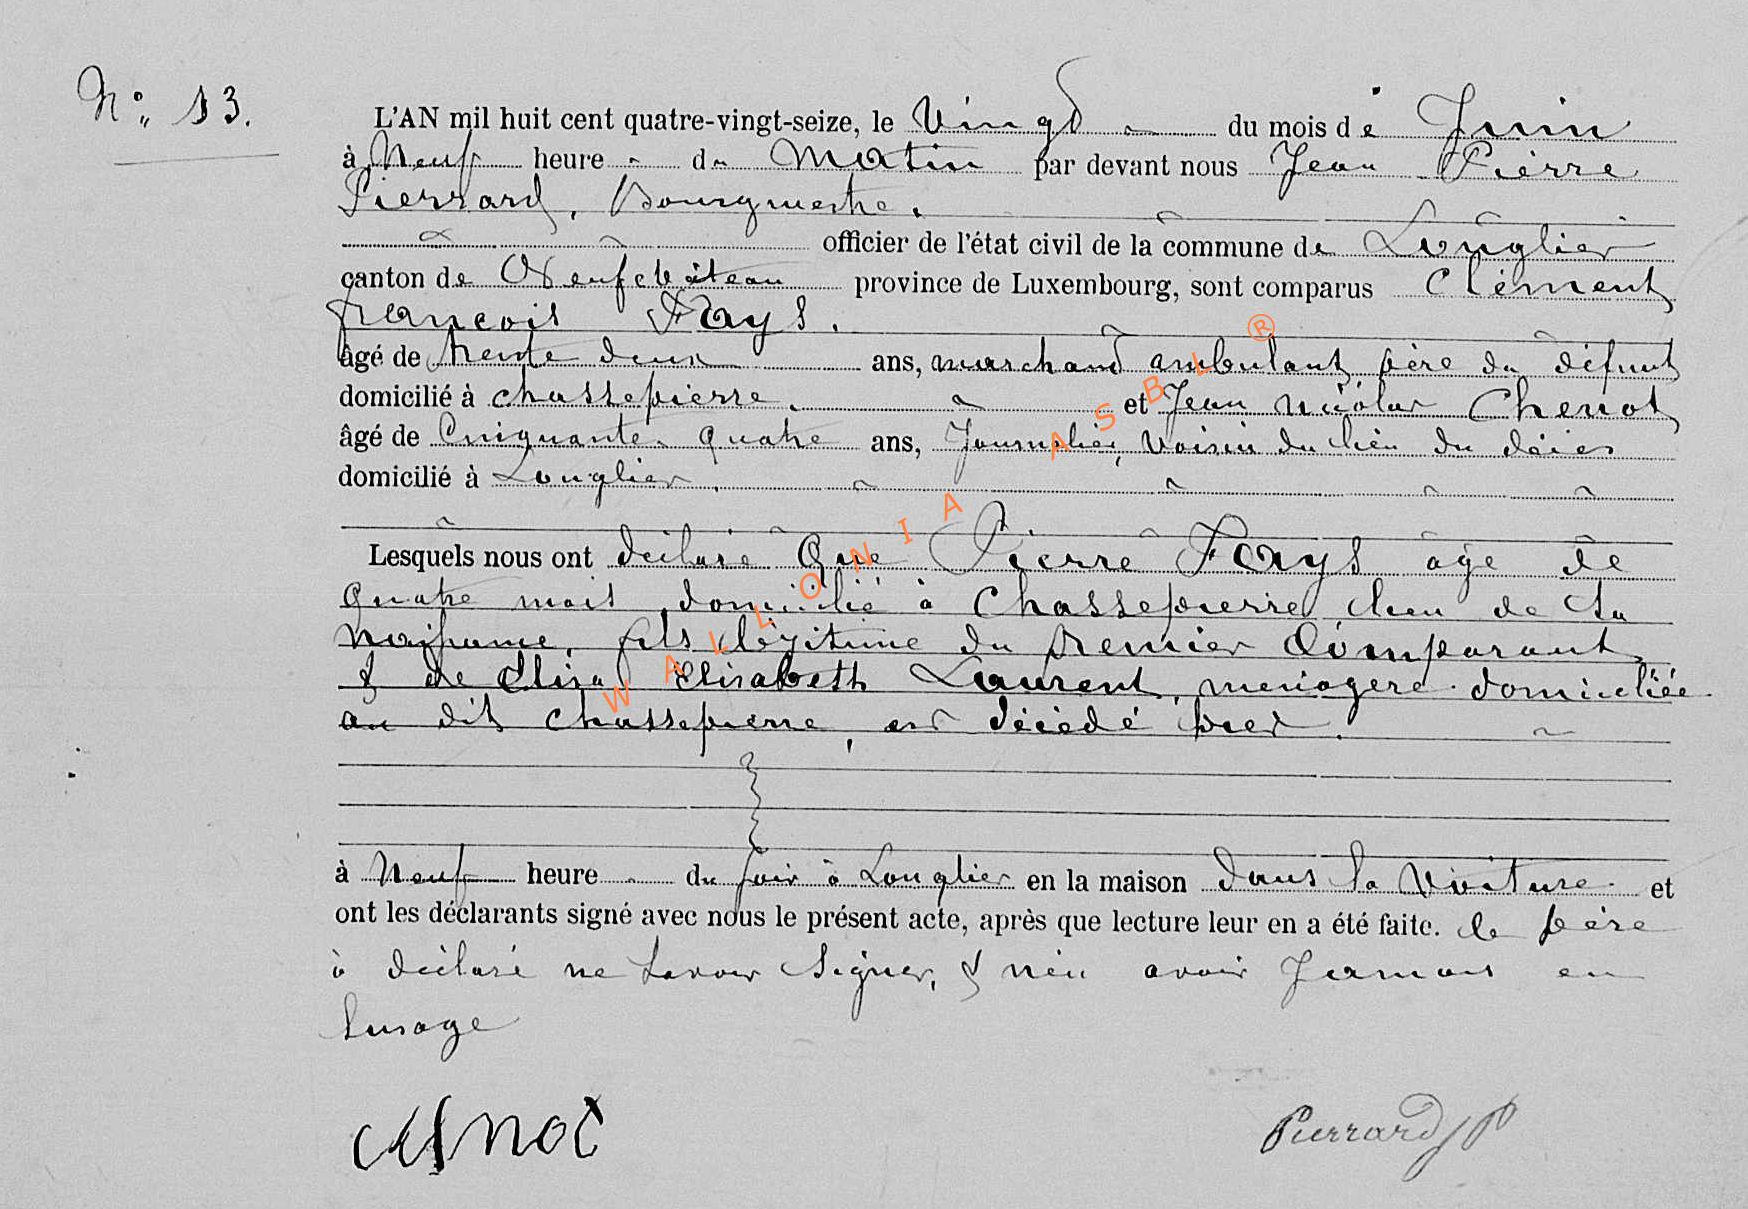 N° 13.
L'AN mil huit cent quatre-vingt-seize, le Vingt du mois de Juin
à Neuf heure du Matin par devant nous Jean Pierre
Pierrard, Bourgmestre.
officier de l'état civil de la commune de Longlier
canton de Neufchâteau province de Luxembourg, sont comparus Clément
françois Fays.
âgé de trente deux ans, marchand ambulant père du défunt
domicilié à chassepierre. et Jean nicolas Chenot
âgé de Cinquante quatre ans, Journalier, voisin du lieu du décès
domicilié à Longlier.
Lesquels nous ont déclaré Que Pierre Fays âgé de
quatre mois, domicilié à Chassepierre lieu de sa
naissance, fils légitime du Premier Comparant
& de Elisa Elisabeth Laurent, menagère domiciliée
au dit chassepierre, est décédé hier.
à Neuf heure du soir à Longlier en la maison dans la Voiture et
ont les déclarants signé avec nous le présent acte, après que lecture leur en a été faite. le père
à déclaré ne savoir signer, & n'en avoir Jamais eu
lusage
chnot
Pierrard JP
WALLONIA ASBL ®